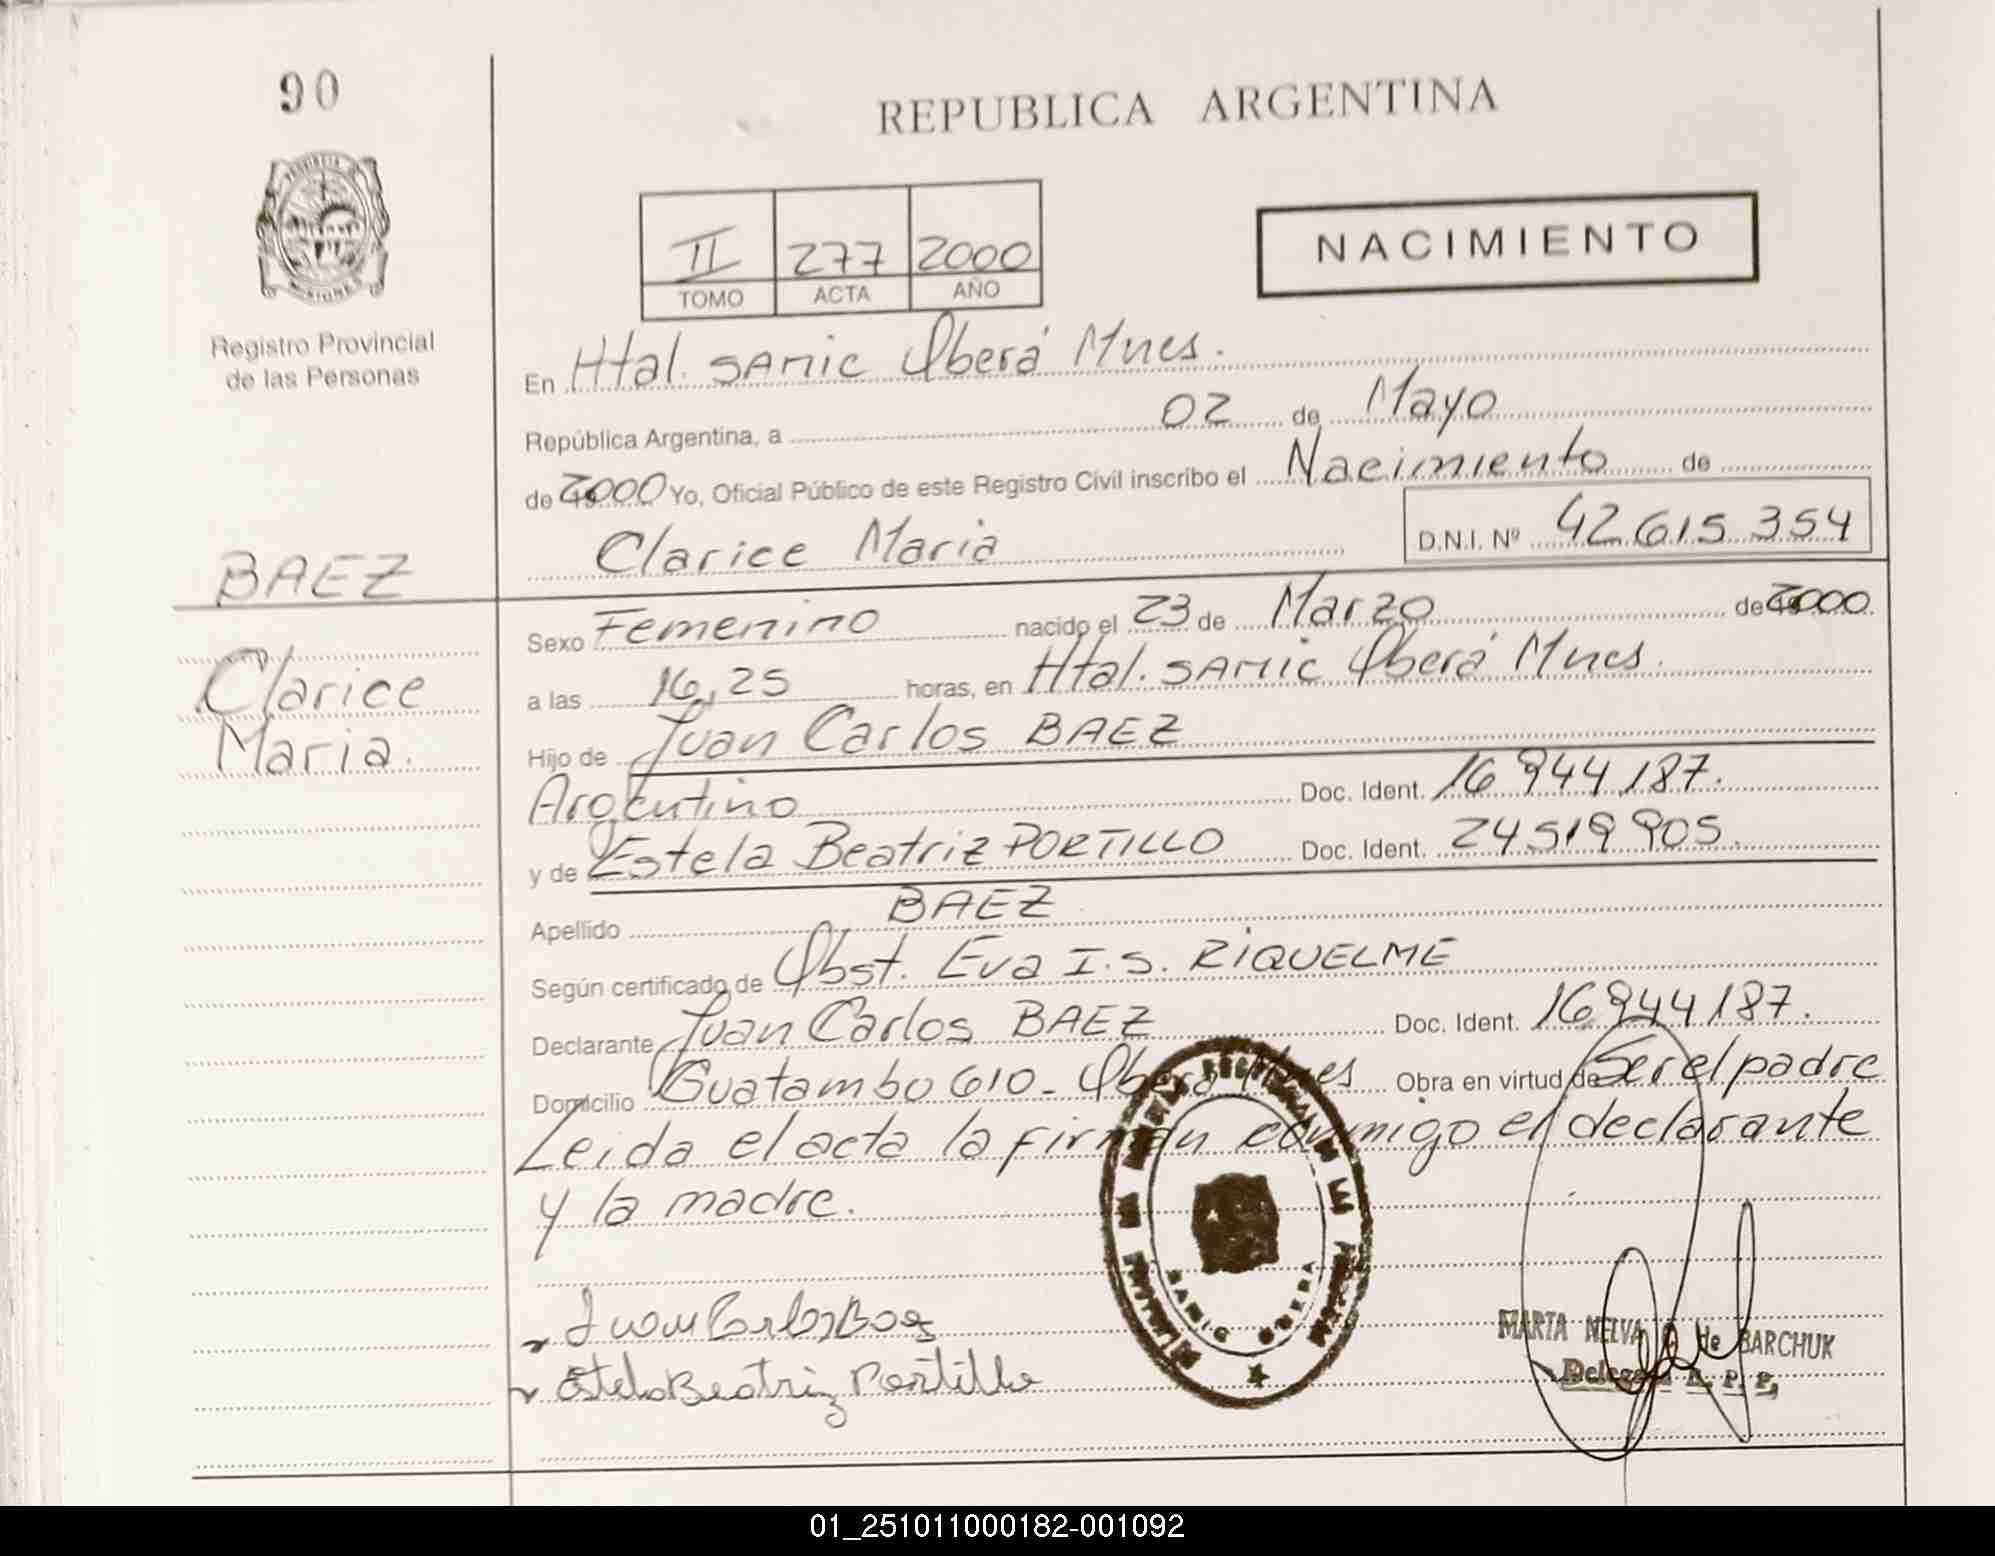 90
REPUBLICA ARGENTINA
II 277 2000
TOMO ACTA AÑO
NACIMIENTO
Registro Provincial
de las Personas
En Htal. SAMIC Oberá Mnes.
República Argentina, a 02 de Mayo
de 2000 Yo, Oficial Público de este Registro Civil inscribo el Nacimiento de
Clarice Maria D.N.I. Nº 42.615.354
BAEZ
Clarice
Maria.
Sexo Femenino nacido el 23 de Marzo de 2000
a las 16,25 horas, en Htal. SAMIC Oberá Mnes.
Hijo de Juan Carlos BAEZ
Argentino Doc. Ident. 16 944 187.
y de Estela Beatriz PORTILLO Doc. Ident. 24 519 905.
Apellido BAEZ
Según certificado de Obst. Eva I.S. RIQUELME
Declarante Juan Carlos BAEZ Doc. Ident. 16 944 187.
Domicilio Guatambo 610 - Oberá Mnes Obra en virtud de Ser el padre
Leida el acta la firman conmigo el declarante
y la madre.
Juan Carlos Baez
Estela Beatriz Portillo
SAMIC OBERA
MARTA NELVA de BARCHUK
Delegada R. P. P.
01_251011000182-001092